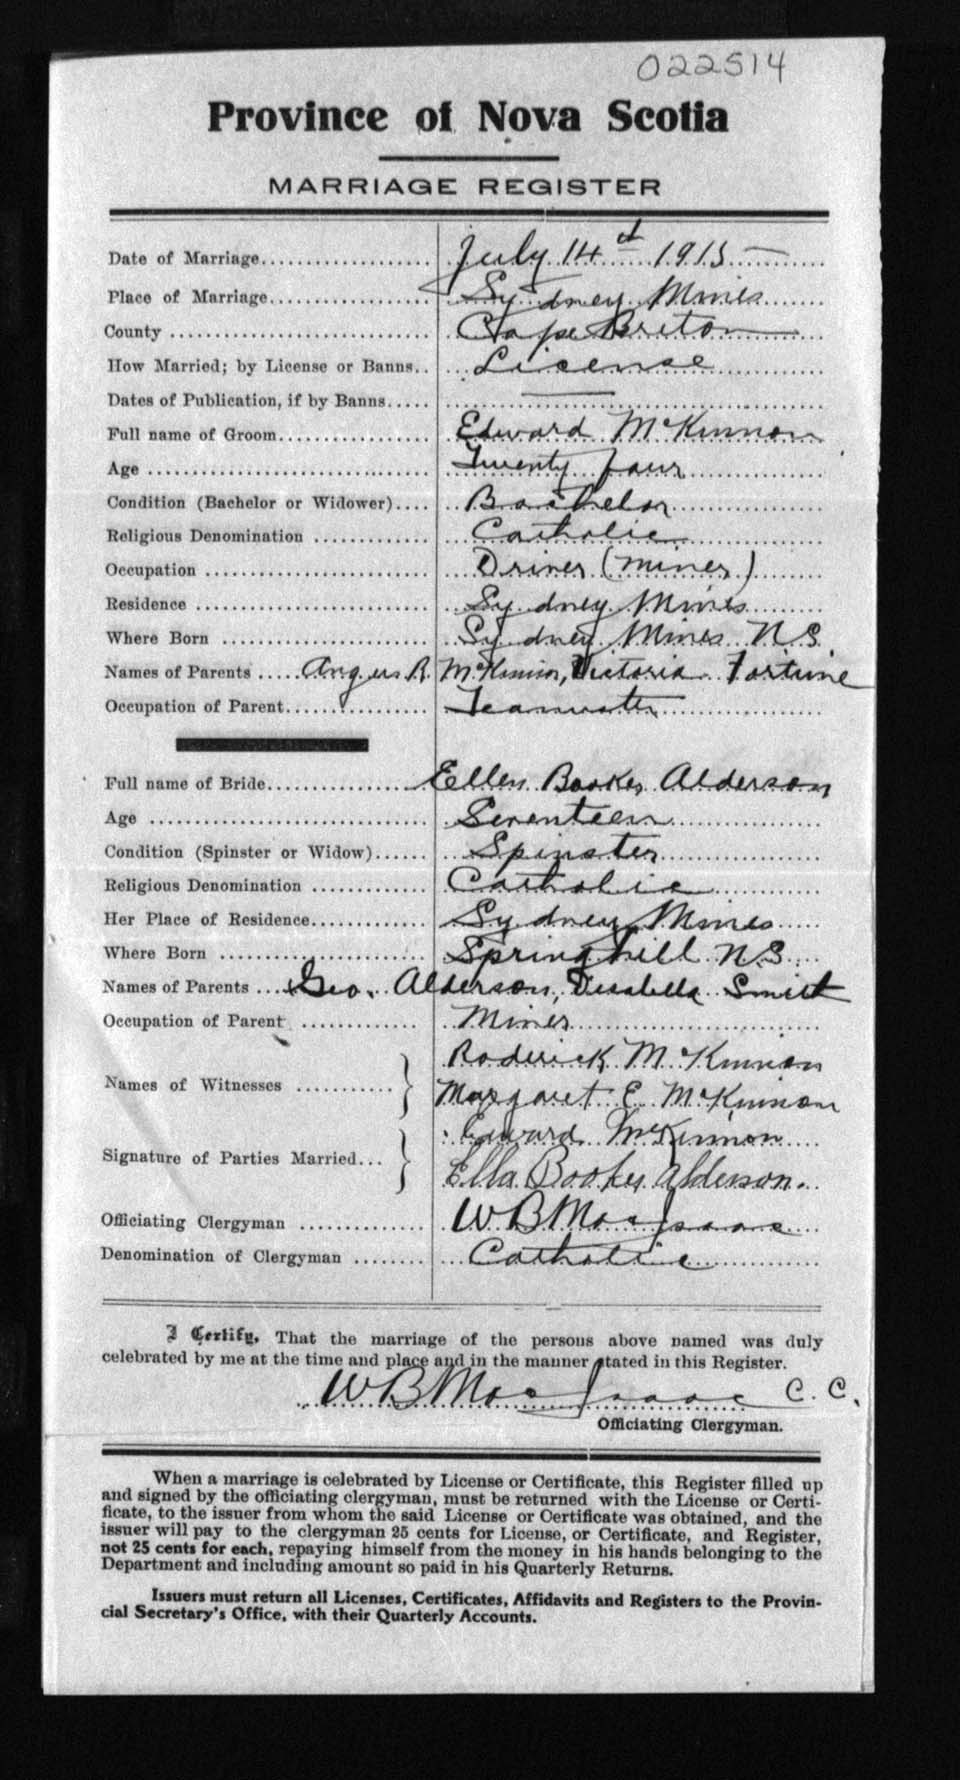 022514
Province of Nova Scotia
MARRIAGE REGISTER
Date of Marriage.................... July 14th 1915
Place of Marriage................... Sydney Mines
County ............................. Cape Breton
How Married; by License or Banns.. License
Dates of Publication, if by Banns..... —
Full name of Groom................. Edward McKinnon
Age ................................ Twenty four
Condition (Bachelor or Widower).... Bachelor
Religious Denomination ............. Catholic
Occupation ......................... Driver (Miner)
Residence .......................... Sydney Mines
Where Born ......................... Sydney Mines N.S.
Names of Parents .... Angus R. McKinnon, Victoria Fortune
Occupation of Parent................ Teamster
Full name of Bride.................. Ellen Booker Alderson
Age ................................ Seventeen
Condition (Spinster or Widow)...... Spinster
Religious Denomination ............ Catholic
Her Place of Residence............. Sydney Mines
Where Born ......................... Springhill N.S.
Names of Parents .... Geo. Alderson, Smith
Occupation of Parent ............. Miner
Names of Witnesses ........... } Roderick McKinnon
Margaret E. McKinnon
Signature of Parties Married... } Edward McKinnon
Ella Booker Alderson.
Officiating Clergyman .............. W B MacIsaac
Denomination of Clergyman ........ Catholic
I Certify, That the marriage of the persons above named was duly
celebrated by me at the time and place and in the manner stated in this Register.
W B MacIsaac C. C.
Officiating Clergyman.
When a marriage is celebrated by License or Certificate, this Register filled up
and signed by the officiating clergyman, must be returned with the License or Certi-
ficate, to the issuer from whom the said License or Certificate was obtained, and the
issuer will pay to the clergyman 25 cents for License, or Certificate, and Register,
not 25 cents for each, repaying himself from the money in his hands belonging to the
Department and including amount so paid in his Quarterly Returns.
Issuers must return all Licenses, Certificates, Affidavits and Registers to the Provin-
cial Secretary's Office, with their Quarterly Accounts.